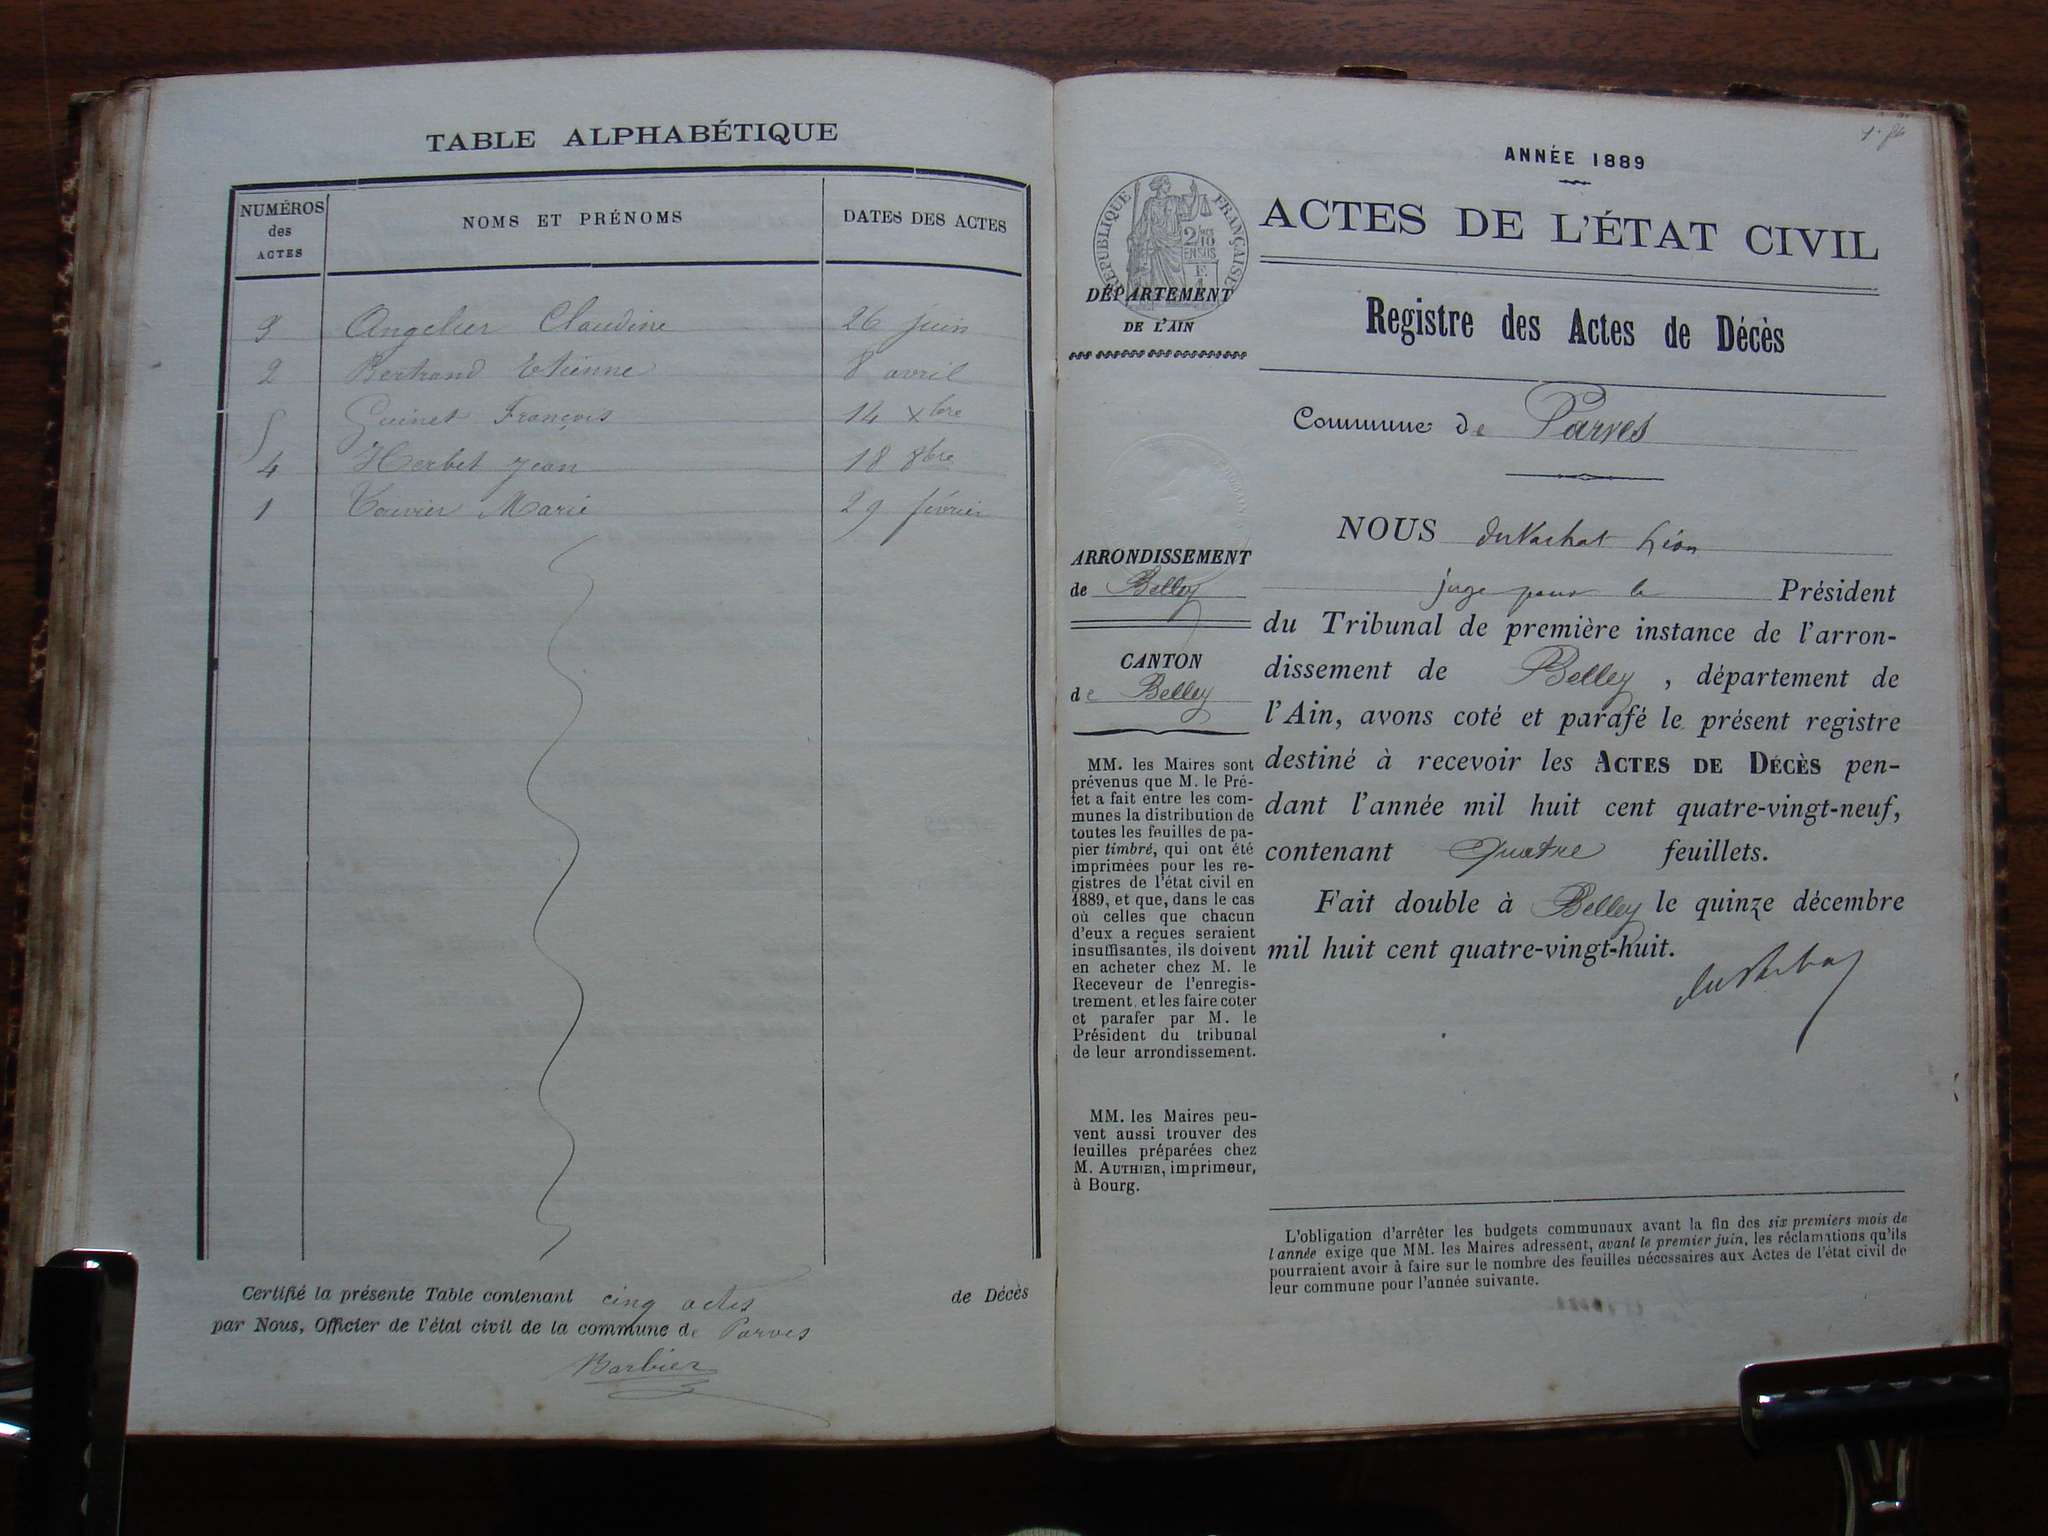 TABLE ALPHABÉTIQUE
NUMÉROS des ACTES
NOMS ET PRÉNOMS
DATES DES ACTES
3 Angelier Claudine 26 juin
2 Bertrand Etienne 8 avril
5 Guinet François 14 Xbre
4 Herbet Jean 18 8bre
1 Touvier Marie 29 février
Certifié la présente Table contenant cinq actes de Décès
par Nous, Officier de l'état civil de la commune de Parves
Barbier
ANNÉE 1889
RÉPUBLIQUE FRANÇAISE
ACTES DE L'ÉTAT CIVIL
DÉPARTEMENT
DE L'AIN
Registre des Actes de Décès
Commune de Parves
NOUS duVachat Léon
juge pour le Président
du Tribunal de première instance de l'arron-
dissement de Belley, département de
l'Ain, avons coté et parafé le présent registre
destiné à recevoir les ACTES DE DÉCÈS pen-
dant l'année mil huit cent quatre-vingt-neuf,
contenant quatre feuillets.
Fait double à Belley le quinze décembre
mil huit cent quatre-vingt-huit.
ARRONDISSEMENT
de Belley
CANTON
de Belley
MM. les Maires sont
prévenus que M. le Pré-
fet a fait entre les com-
munes la distribution de
toutes les feuilles de pa-
pier timbré, qui ont été
imprimées pour les re-
gistres de l'état civil en
1889, et que, dans le cas
où celles que chacun
d'eux a reçues seraient
insuffisantes, ils doivent
en acheter chez M. le
Receveur de l'enregis-
trement, et les faire coter
et parafer par M. le
Président du tribunal
de leur arrondissement.
MM. les Maires peu-
vent aussi trouver des
feuilles préparées chez
M. AUTHIER, imprimeur,
à Bourg.
L'obligation d'arrêter les budgets communaux avant la fin des six premiers mois de
l'année exige que MM. les Maires adressent, avant le premier juin, les réclamations qu'ils
pourraient avoir à faire sur le nombre des feuilles nécessaires aux Actes de l'état civil de
leur commune pour l'année suivante.